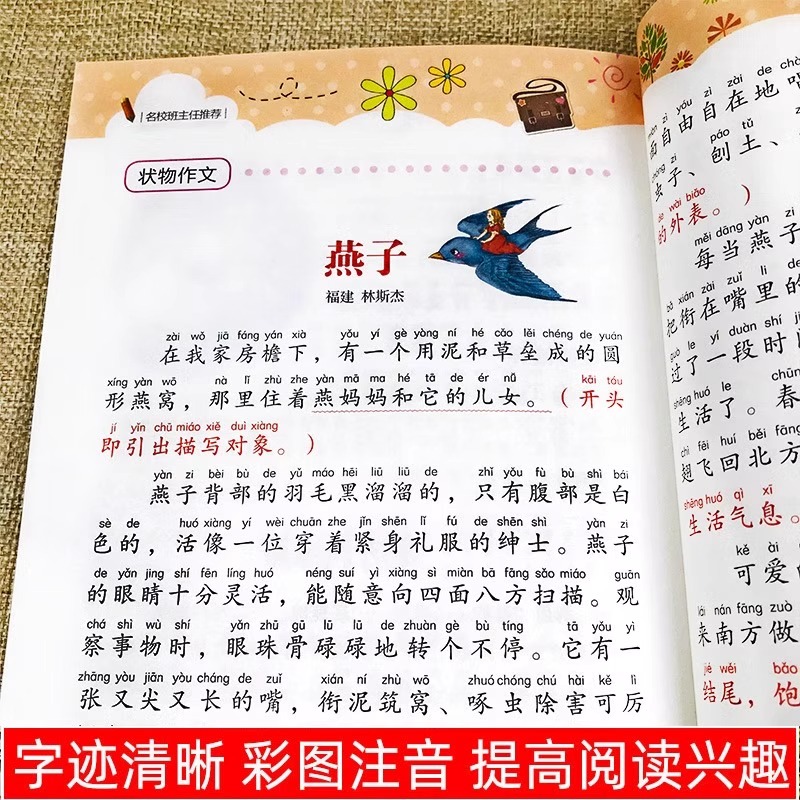 名校班主任推荐
状物作文
燕子
福建 林斯杰
zài wǒ jiā fáng yán xià yǒu yí gè yòng ní hé cǎo lěi chéng de yuán
在我家房檐下，有一个用泥和草垒成的圆
xíng yàn wō nà lǐ zhù zhe yàn mā ma hé tā de ér nǚ kāi tóu
形燕窝，那里住着燕妈妈和它的儿女。（开头
jí yǐn chū miáo xiě duì xiàng
即引出描写对象。）
yàn zi bèi bù de yǔ máo hēi liū liū de zhǐ yǒu fù bù shì bái
燕子背部的羽毛黑溜溜的，只有腹部是白
sè de huó xiàng yí wèi chuān zhe jǐn shēn lǐ fú de shēn shì yàn zi
色的，活像一位穿着紧身礼服的绅士。燕子
de yǎn jing shí fēn líng huó néng suí yì xiàng sì miàn bā fāng sǎo miáo guān
的眼睛十分灵活，能随意向四面八方扫描。观
chá shì wù shí yǎn zhū gū lū lū de zhuàn gè bù tíng tā yǒu yì
察事物时，眼珠骨碌碌地转个不停。它有一
zhāng yòu jiān yòu cháng de zuǐ xián ní zhù wō zhuó chóng chú hài kě lì
张又尖又长的嘴，衔泥筑窝、啄虫除害可厉
yóu zì zài de
面自由自在地
páo tǔ
虫子、刨土、
de wài biǎo
的外表。）
měi dāng yàn zi
每当燕子
bǎ xián zài zuǐ lǐ de
把衔在嘴里的
guò le yí duàn shí
过了一段时
shēng huó le chūn
生活了。春
chì fēi huí běi fāng
翅飞回北方
shēng huó qì xī
生活气息。
kě ài
可爱的
lái nán fāng zuò
来南方做
jié wěi bǎo
结尾，饱
字迹清晰 彩图注音 提高阅读兴趣